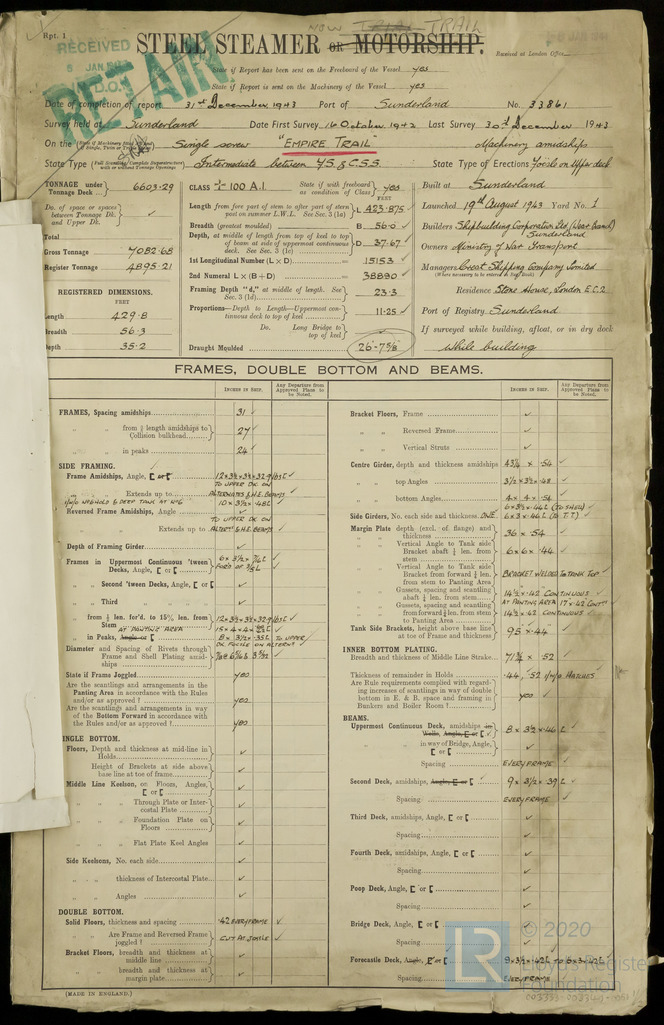 Rpt. 1
NOW TRAIL TRAIL
RECEIVED
6 JAN
D.O.
RETAIN
STEEL STEAMER OR MOTORSHIP.
Received at London Office
State if Report has been sent on the Freeboard of the Vessel yes
State if Report is sent on the Machinery of the Vessel yes
Date of completion of report 31st December 1943 Port of Sunderland No. 33861
Survey held at Sunderland Date First Survey 16 October 1942 Last Survey 30th December 1943
On the Single screw "EMPIRE TRAIL" Machinery amidships
State Type Intermediate between F.S. & C.S.S. State Type of Erections Fo'csle on Upper deck
TONNAGE under Tonnage Deck 6603.29
Do. of space or spaces between Tonnage Dk. and Upper Dk.
Total
Gross Tonnage 7082.68
Register Tonnage 4895.21
REGISTERED DIMENSIONS.
FEET
Length 429.8
Breadth 56.3
Depth 35.2
CLASS 100 A.1 State if with freeboard as condition of Class yes
FEET
Length from fore part of stem to after part of stern post on summer L.W.L. See Sec. 3 (1a) L 423.875
Breadth (greatest moulded) B 56.0
Depth, at middle of length from top of keel to top of beam at side of uppermost continuous deck. See Sec. 3 (1c) D 37.67
1st Longitudinal Number (L × D) 15153
2nd Numeral L × (B + D) 38890
Framing Depth "d," at middle of length. See Sec. 3 (1d) 23.3
Proportions—Depth to Length—Uppermost continuous deck to top of keel 11.25
Do. Long Bridge to top of keel
Draught Moulded 26'-7 5/8
Built at Sunderland
Launched 19th August 1943 Yard No. 1
Builders Shipbuilding Corporation Ltd (Wear Branch) Sunderland
Owners Ministry of War Transport
Managers Court Shipping Company Limited
(Where necessary to be entered in Reg. Book)
Residence Stone House, London E.C.2
Port of Registry Sunderland
If surveyed while building, afloat, or in dry dock
While building
FRAMES, DOUBLE BOTTOM AND BEAMS.
INCHES IN SHIP.
Any Departure from Approved Plans to be Noted.
INCHES IN SHIP.
Any Departure from Approved Plans to be Noted.
FRAMES, Spacing amidships 31
" " from ⅗ length amidships to Collision bulkhead 27
" " in peaks 24
SIDE FRAMING.
Frame Amidships, Angle, [ or [
TO UPPER DK. ON
" " Extends up to ALTERNATES & H.E. BEAMS
10 × 3½ × .48L
Reversed Frame Amidships, Angle
TO UPPER DK ON
" " Extends up to ALTERNTS & H.E. BEAMS
Depth of Framing Girder
Frames in Uppermost Continuous 'tween Decks, Angle, [ or [
" " Second 'tween Decks, Angle, [ or [
" " Third " " " "
" " from ⅕ len. for'd. to 15% len. from Stem
AT PANTING AREA
" " in Peaks, Angle or [
Diameter and Spacing of Rivets through Frame and Shell Plating amidships
State if Frame Joggled yes
Are the scantlings and arrangements in the Panting Area in accordance with the Rules and/or as approved? yes
Are the scantlings and arrangements in way of the Bottom Forward in accordance with the Rules and/or as approved? yes
INGLE BOTTOM.
Floors, Depth and thickness at mid-line in Holds
Height of Brackets at side above base line at toe of frame
Middle Line Keelson, on Floors, Angles, [ or [
" " Through Plate or Intercostal Plate
" " Foundation Plate on Floors
" " Flat Plate Keel Angles
Side Keelsons, No. each side
" " thickness of Intercostal Plate
" " Angles
DOUBLE BOTTOM.
Solid Floors, thickness and spacing .42 EVERY FRAME
" " Are Frame and Reversed Frame joggled?
Bracket Floors, breadth and thickness at middle line
" " breadth and thickness at margin plate
Bracket Floors, Frame
" " Reversed Frame
" " Vertical Struts
Centre Girder, depth and thickness amidships 43¼ × .54
" " top Angles 3½ × 3½ × .48
" " bottom Angles 4 × 4 × .54
6 × 3½ × .46L (TO SHELL)
Side Girders, No. each side and thickness. ONE 6 × 3 × .46L (TO T.T.)
Margin Plate depth (excl. of flange) and thickness 36 × .54
" " Vertical Angle to Tank side Bracket abaft ¼ len. from stem 6 × 6 × .44
" " Vertical Angle to Tank side Bracket from forward ¼ len. from stem to Panting Area BRACKET WELDED TO TANK TOP
" " Gussets, spacing and scantling abaft ¼ len. from stem 14½ × .42 CONTINUOUS
AT PANTING AREA 17 × .42 CONTS
" " Gussets, spacing and scantling from forward ¼ len. from stem to Panting Area 14½ × .42 CONTINUOUS
Tank Side Brackets, height above base line at toe of Frame and thickness 95 × .44
INNER BOTTOM PLATING.
Breadth and thickness of Middle Line Strake 71¾ × .52
Thickness of remainder in Holds .44, .52 I/W/O HATCHES
Are Rule requirements complied with regarding increases of scantlings in way of double bottom in E. & B. space and framing in Bunkers and Boiler Room? yes
BEAMS.
Uppermost Continuous Deck, amidships in Wells, Angle, [ or [ 8 × 3½ × .46 L
" " in way of Bridge, Angle, [ or [
Spacing EVERY FRAME
Second Deck, amidships, Angle, [ or [ 9 × 3½ × .39 L
Spacing EVERY FRAME
Third Deck, amidships, Angle, [ or [
Spacing
Fourth Deck, amidships, Angle, [ or [
Spacing
Poop Deck, Angle, [ or [
Spacing
Bridge Deck, Angle, [ or [
Spacing
Forecastle Deck, Angle, [ or [ 9 × 3½ × .42L TO 6 × 3 × .42L
Spacing EVERY FRAME
(MADE IN ENGLAND.)
LR
© 2020
Lloyd's Register
Foundation